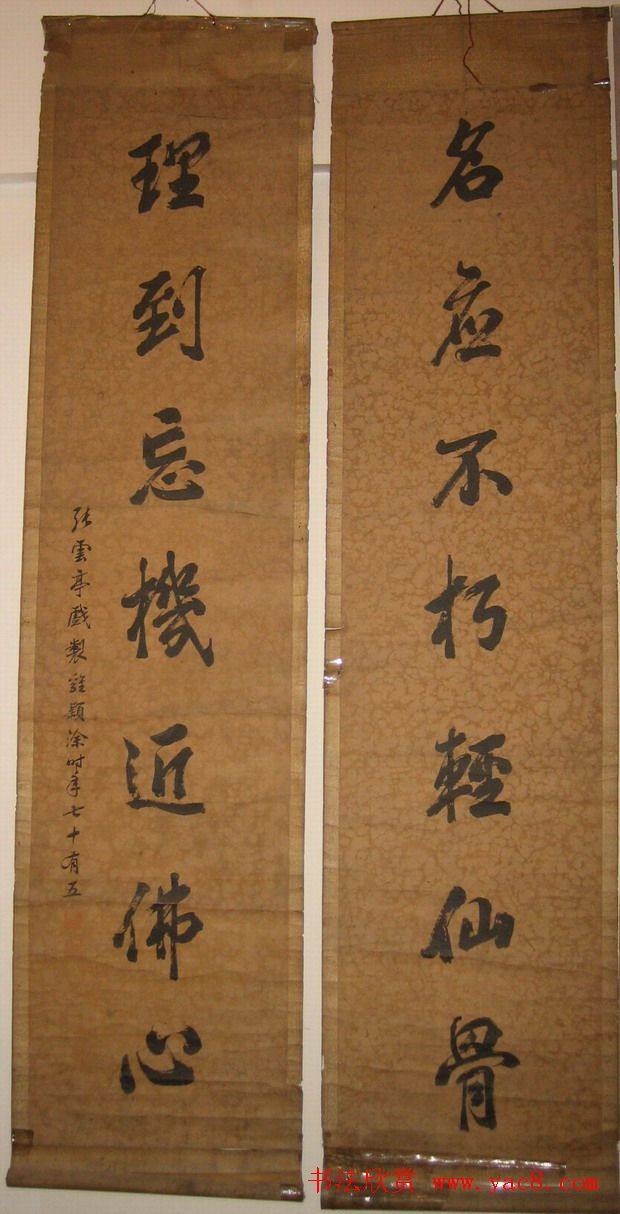 名应不朽輕仙骨
理到忘機近佛心
張雲亭戲製
時年七十有五
书法欣赏 www.yac8.com